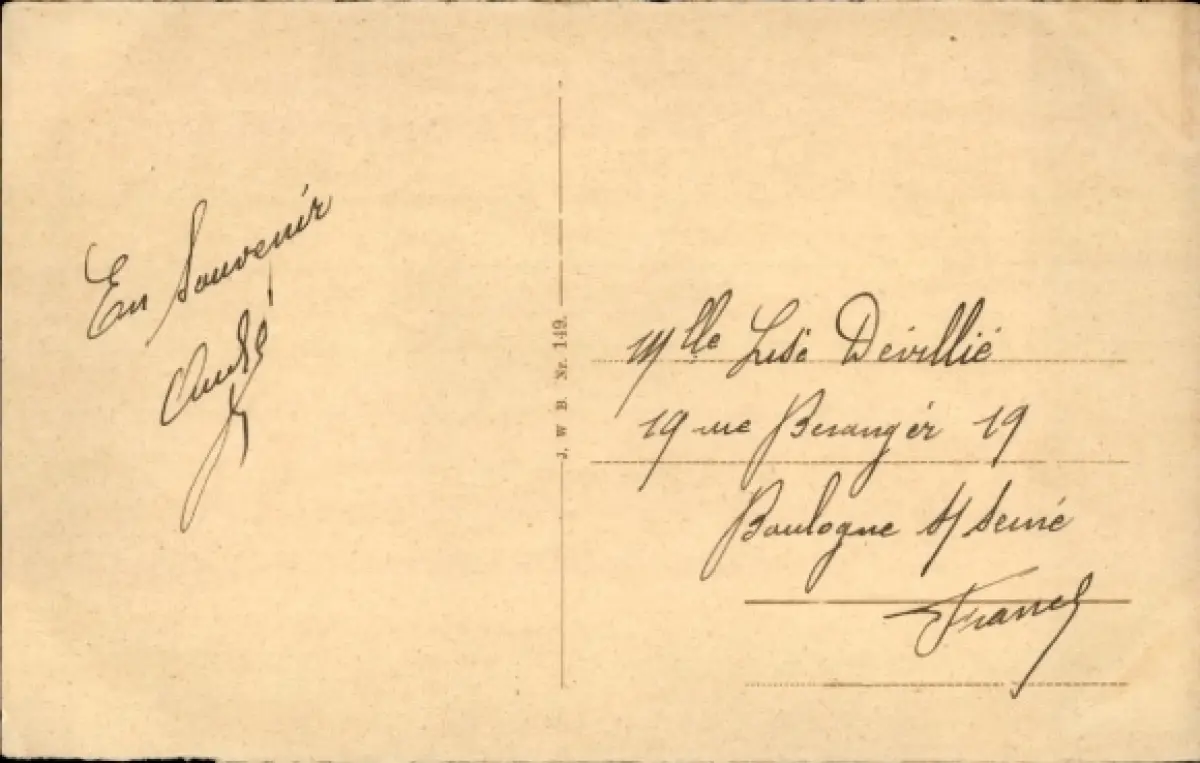 En Souvenir
André
J. W. B. Nr. 149.
Mlle Lise Dévillié
19 rue Beranger 19
Boulogne s/ Seine
France